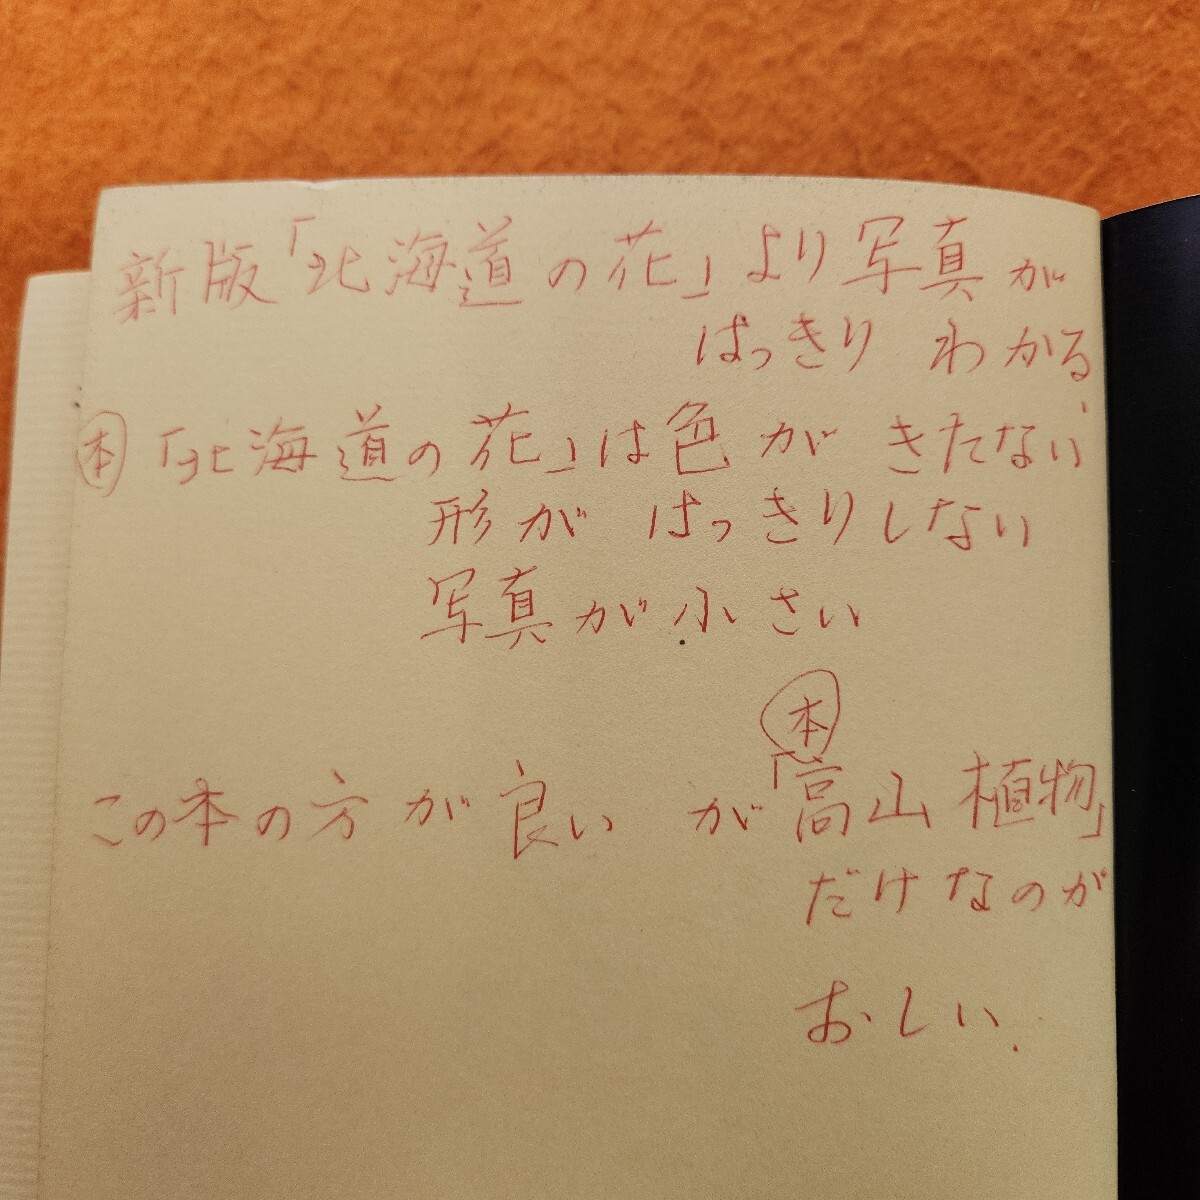 新版「北海道の花」より写真が
はっきりわかる、
㊍「北海道の花」は色がきたない
形がはっきりしない
写真が小さい
本
この本の方が良いが「高山植物」
だけなのが
おしい.